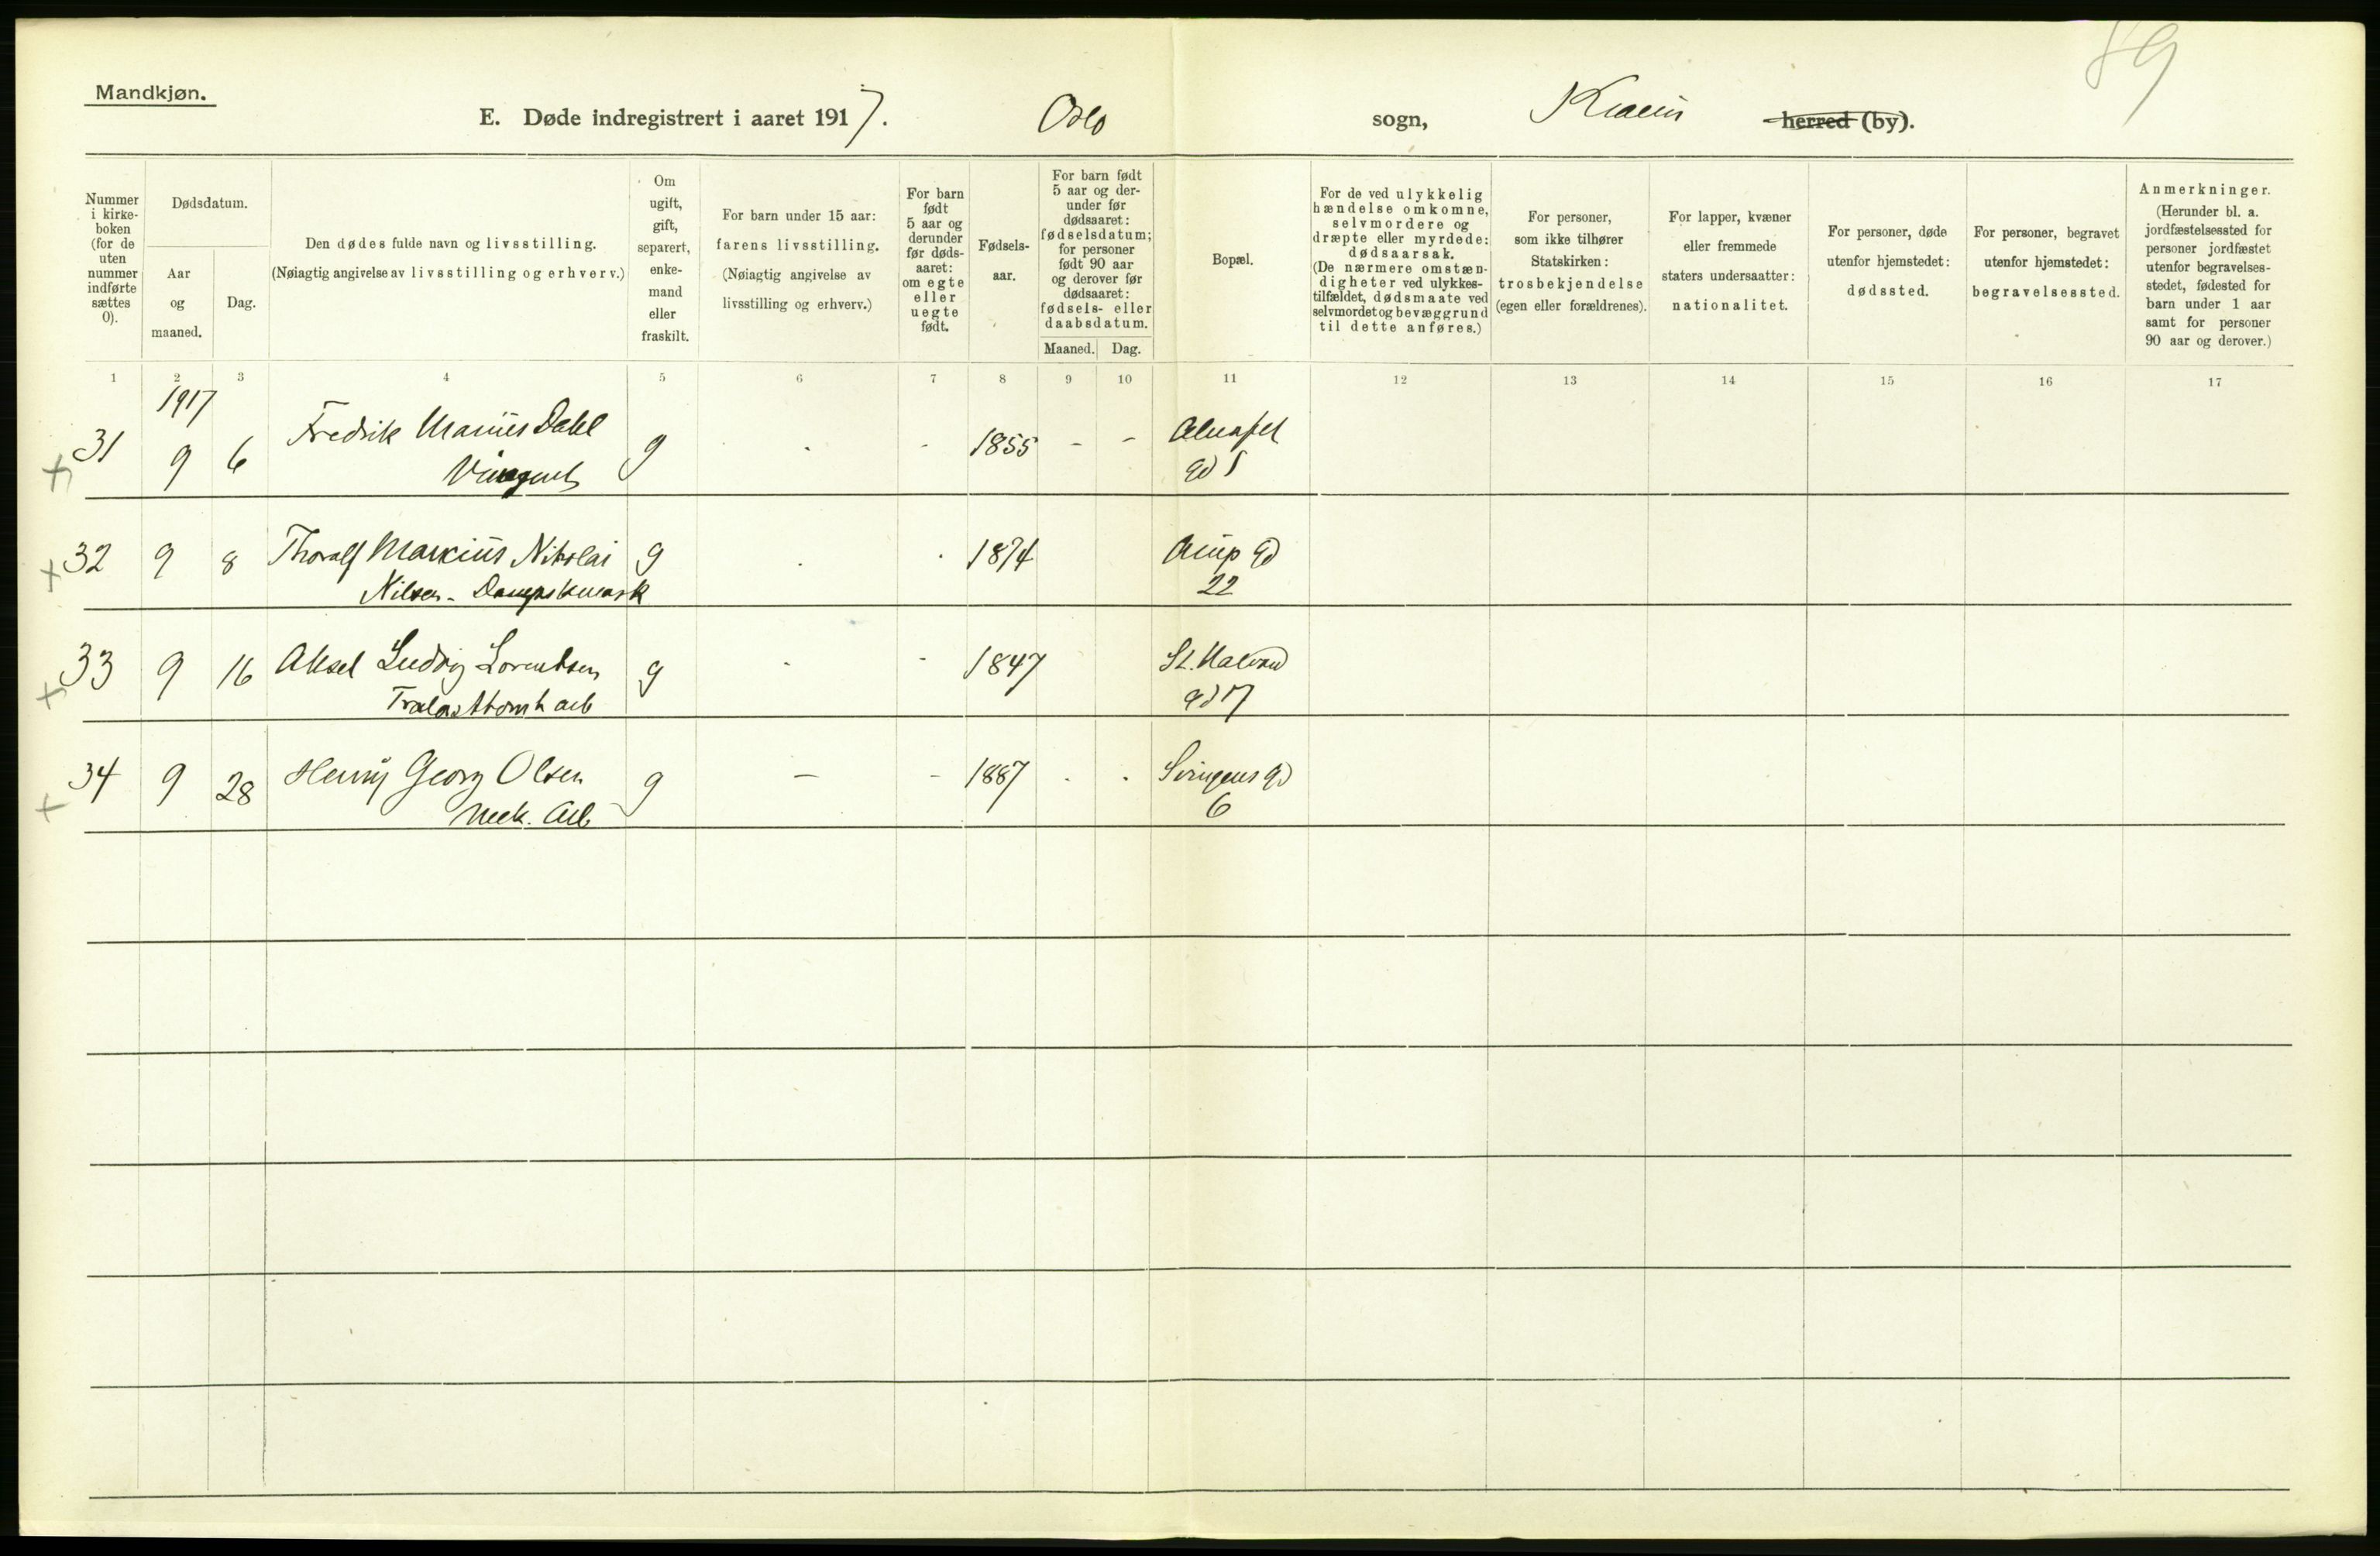 89
Mandkjøn.
E. Døde indregistrert i aaret 1917. Oslo sogn, herred (by).
Nummer i kirkeboken (for de uten nummer indførte sættes 0).
Dødsdatum.
Aar og maaned.
Dag.
Den dødes fulde navn og livsstilling.
(Nøiagtig angivelse av livsstilling og erhverv.)
Om ugift, gift, separert, enkemand eller fraskilt.
For barn under 15 aar:
farens livsstilling.
(Nøiagtig angivelse av livsstilling og erhverv.)
For barn født 5 aar og derunder før dødsaaret: om egte eller uegte født.
Fødselsaar.
For barn født 5 aar og derunder før dødsaaret: fødselsdatum; for personer født 90 aar og derover før dødsaaret: fødsels- eller daabsdatum.
Maaned. Dag.
Bopæl.
For de ved ulykkelig hændelse omkomne, selvmordere og dræpte eller myrdede: dødsaarsak.
(De nærmere omstændigheter ved ulykkestilfældet, dødsmaate ved selvmordet og bevæggrund til dette anføres.)
For personer, som ikke tilhører Statskirken: trosbekjendelse (egen eller forældrenes).
For lapper, kvæner eller fremmede staters undersaatter: nationalitet.
For personer, døde utenfor hjemstedet: dødssted.
For personer, begravet utenfor hjemstedet: begravelsessted.
Anmerkninger.
(Herunder bl. a. jordfæstelsessted for personer jordfæstet utenfor begravelsesstedet, fødested for barn under 1 aar samt for personer 90 aar og derover.)
1 2 3 4 5 6 7 8 9 10 11 12 13 14 15 16 17
1917
+ 31 9 6 Fredrik Marius Dahl g - - 1855 - -
+ 32 9 8 Thoralf Markius Nikolai g 1874 gd
Nilsen - 22
+ 33 9 16 Aksel Ludvig Lorentsen g - - 1847 St. Halvard
arb gd 17
+ 34 9 28 Henry Georg Olsen g - - 1887 Svingens gd
Mek. Arb 6